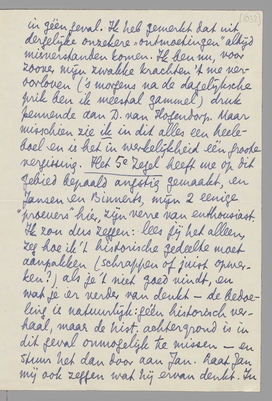 [1032]
in géén geval. Ik heb gemerkt dat uit
dergelijke onzekere "ontmoetingen" altijd
misverstanden komen. Ik ben nu, voor
zoover mijn zwakke krachten 't me ver-
oorloven ('s morgens na de dagelijksche
prik ben ik meestal gammel) druk
pennende aan D. van Hogendorp. Maar
misschien zie ik in dit alles een heele-
boel en is het in werkelijkheid één groote
vergissing. Het 5e Zegel heeft me op dit
gebied bepaald angstig gemaakt, en
Jansen en Binnerts, mijn 2 eenige
"proevers" hier, zijn verre van enthousiast.
Ik zou dus zeggen: lees jij het alleen,
zeg hoe ik 't historische gedeelte moet
aanpakken (schrappen of juist opwer-
ken?) als je 't niet goed vindt, en
wat je er verder van denkt — de bedoe-
ling is natuurlijk: géén historisch ver-
haal, maar de hist. achtergrond is in
dit geval onmogelijk te missen — en
stuur het dan door aan Jan. Laat Jan
mij ook zeggen wat hij ervan denkt. In